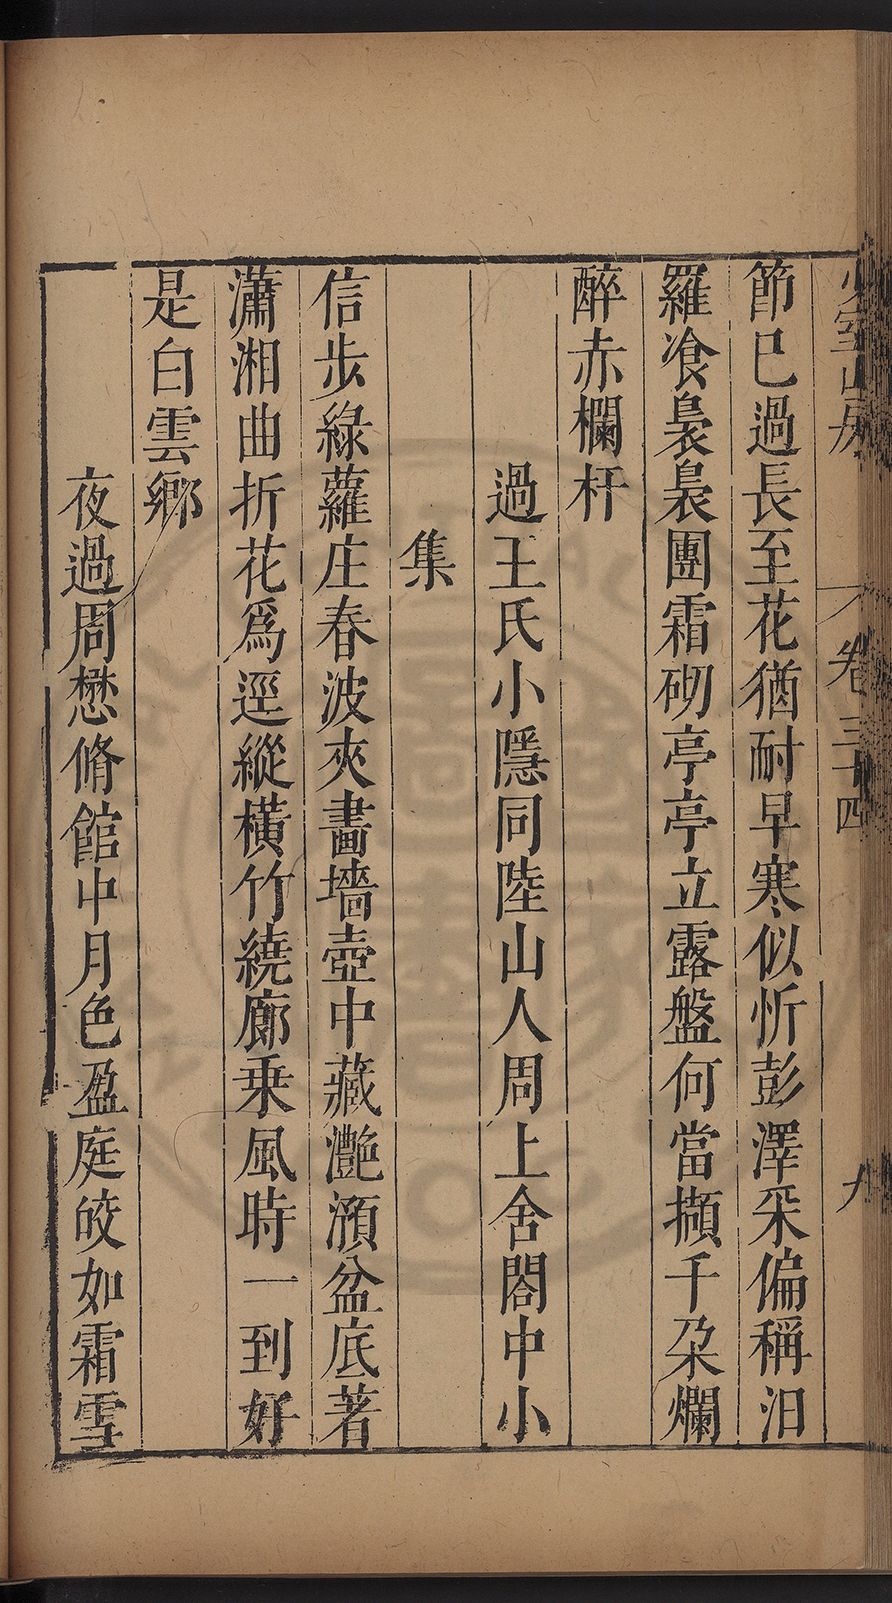 少室山房 卷三十四 九
節已過長至花猶耐早寒似忻彭澤采偏稱汨
羅飡裊裊團霜砌亭亭立露盤何當擷千朶爛
醉赤欄杆
過王氏小隱同陸山人周上舍閣中小
集
信步綠蘿庄春波夾畵墻壺中藏灧澦盆底著
瀟湘曲折花爲逕縱橫竹繞廊乗風時一到好
是白雲鄉
夜過周懋脩館中月色盈庭皎如霜雪